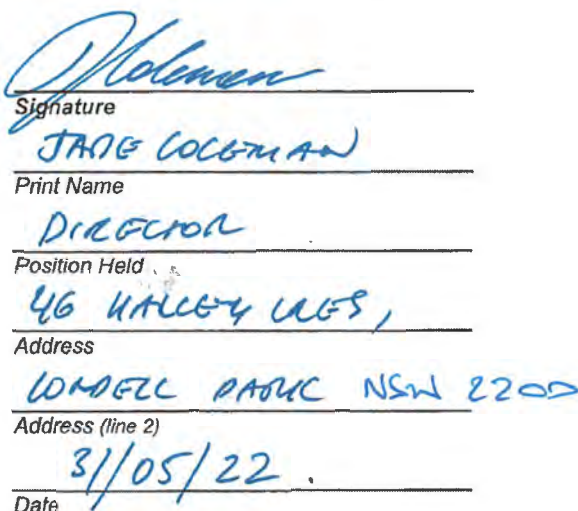 JColeman
Signature
JANE COLEMAN
Print Name
DIRECTOR
Position Held
46 HALLEY CRES,
Address
CONDELL PARK NSW 2200
Address (line 2)
31/05/22.
Date